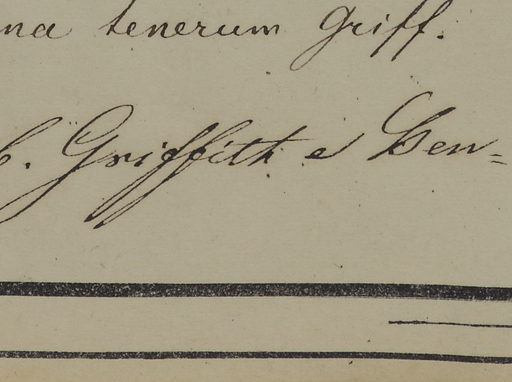 na tenerum Griff.
C. Griffith e Ben=